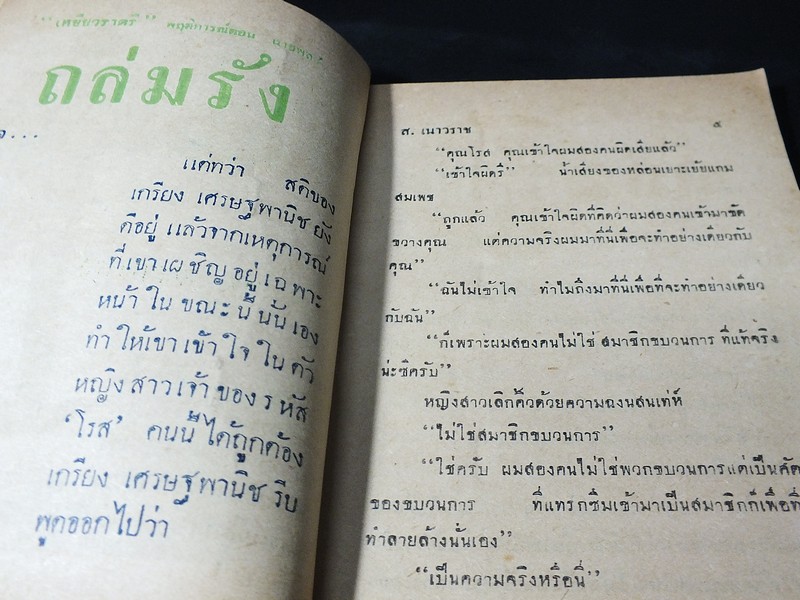 "เหยี่ยวราตรี" พฤติการณ์ตอน
ถล่มรัง
แต่ทว่า สติของ
เกรียง เศรษฐพานิช ยัง
ดีอยู่ แล้วจากเหตุการณ์
ที่เขาเผชิญอยู่เฉพาะ
หน้าในขณะนี้นั้นเอง
ทำให้เขาเข้าใจในตัว
หญิงสาวเจ้าของรหัส
'โรส' คนนี้ได้ถูกต้อง
เกรียง เศรษฐพานิช รีบ
พูดออกไปว่า
ส. เนาวราช ๕
"คุณโรส คุณเข้าใจผมสองคนผิดเสียแล้ว"
"เข้าใจผิดรึ" น้ำเสียงของหล่อนเยาะเย้ยแกม
สมเพช
"ถูกแล้ว คุณเข้าใจผิดที่คิดว่าผมสองคนเข้ามาขัด
ขวางคุณ แต่ความจริงผมมาที่นี่เพื่อจะทำอย่างเดียวกับ
คุณ"
"ฉันไม่เข้าใจ ทำไมถึงมาที่นี่เพื่อที่จะทำอย่างเดียว
กับฉัน"
"ก็เพราะผมสองคนไม่ใช่สมาชิกขบวนการ ที่แท้จริง
น่ะซีครับ"
หญิงสาวเลิกคิ้วด้วยความฉงนสนเท่ห์
"ไม่ใช่สมาชิกขบวนการ"
"ใช่ครับ ผมสองคนไม่ใช่พวกขบวนการแต่เป็นศัต
ของขบวนการ ที่แทรกซึมเข้ามาเป็นสมาชิกก็เพื่อที่
ทำลายล้างนั่นเอง"
"เป็นความจริงหรือนี่"